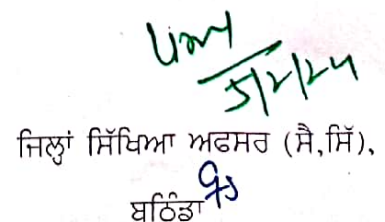 5/2/24
ਜਿਲ੍ਹਾਂ ਸਿੱਖਿਆ ਅਫਸਰ (ਸੈ,ਸਿੱ),
ਬਠਿੰਡਾ